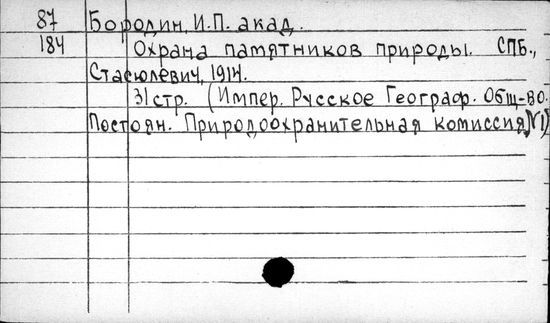 87 Бородин, И.П. акад.
184 Охрана памятников природы. СПБ.,
Стасюлевич, 1914.
31 стр. (Импер. Русское Географ. Общ-во.
Постоян. Природоохранительная комиссия, №1)